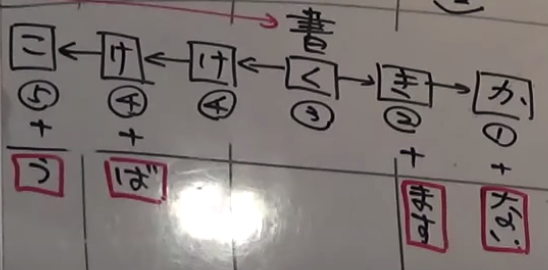 書
こ ← け ← け ← く → き → か
⑤ ④ ④ ③ ② ①
+ + + +
う ば ます ない